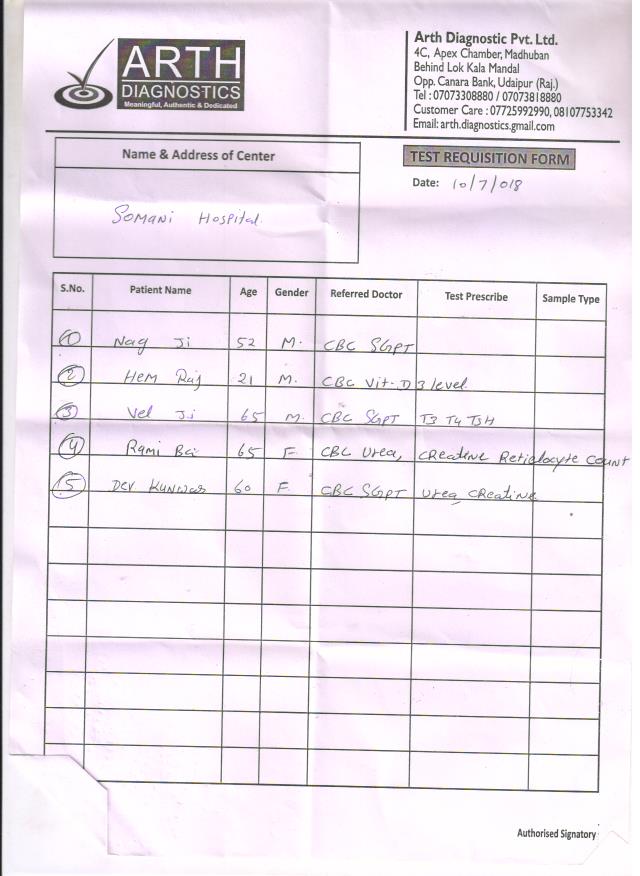 ARTH
DIAGNOSTICS
Meaningful, Authentic & Dedicated
Arth Diagnostic Pvt. Ltd.
4C, Apex Chamber, Madhuban
Behind Lok Kala Mandal
Opp. Canara Bank, Udaipur (Raj.)
Tel : 07073308880 / 07073818880
Customer Care : 07725992990, 08107753342
Email: arth.diagnostics.gmail.com
Name & Address of Center
Somani Hospital
TEST REQUISITION FORM
Date: 10/7/018
S.No. Patient Name Age Gender Referred Doctor Test Prescribe Sample Type
1 Nag Ji 52 M. CBC SGPT
2 Hem Raj 21 M. CBC Vit-D3 level
3 Vel Ji 65 M CBC SGPT T3 T4 TSH
4 Rami Bai 65 F CBC Urea, Creatine Reticlocyte Count
5 Dev Kunwar 60 F CBC SGPT Urea Creatine
Authorised Signatory